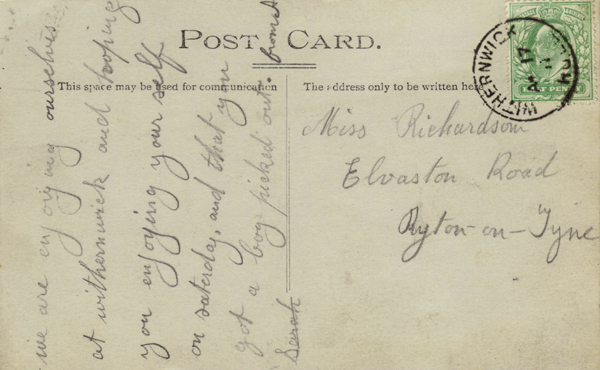 POST CARD.
This space may be used for communication
The address only to be written here
we are enjoying ourselves
at withernwick and hoping
you enjoying your self
on saturday, and that you
got a boy picked out. from A
Sarah
Miss Richardson
Elvaston Road
Ryton-on-Tyne
WITHERNWICK
HALF PENNY